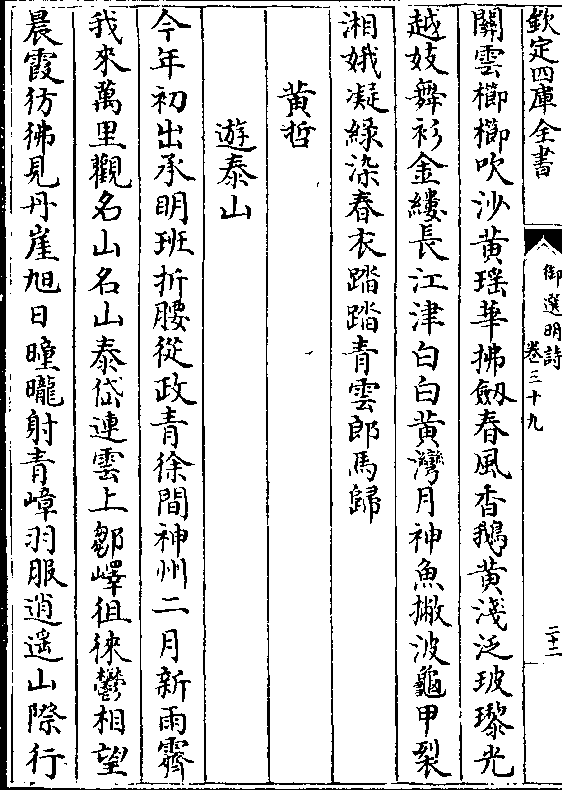 欽定四庫全書
御選明詩
卷三十九
二十二
關雲櫛櫛吹沙黄瑶華拂劔春風香鵝黄淺泛玻瓈光
越妓舞衫金縷長江津白白黄灣月神魚撇波龜甲裂
湘娥凝緑染春衣踏踏青雲郎馬歸
黄哲
遊泰山
今年初出承眀班折腰從政青徐間神州二月新雨霽
我來萬里觀名山名山泰岱連雲上鄒嶧徂徠鬱相望
晨霞彷彿見丹崖旭日曈曨射青嶂羽服逍遥山際行